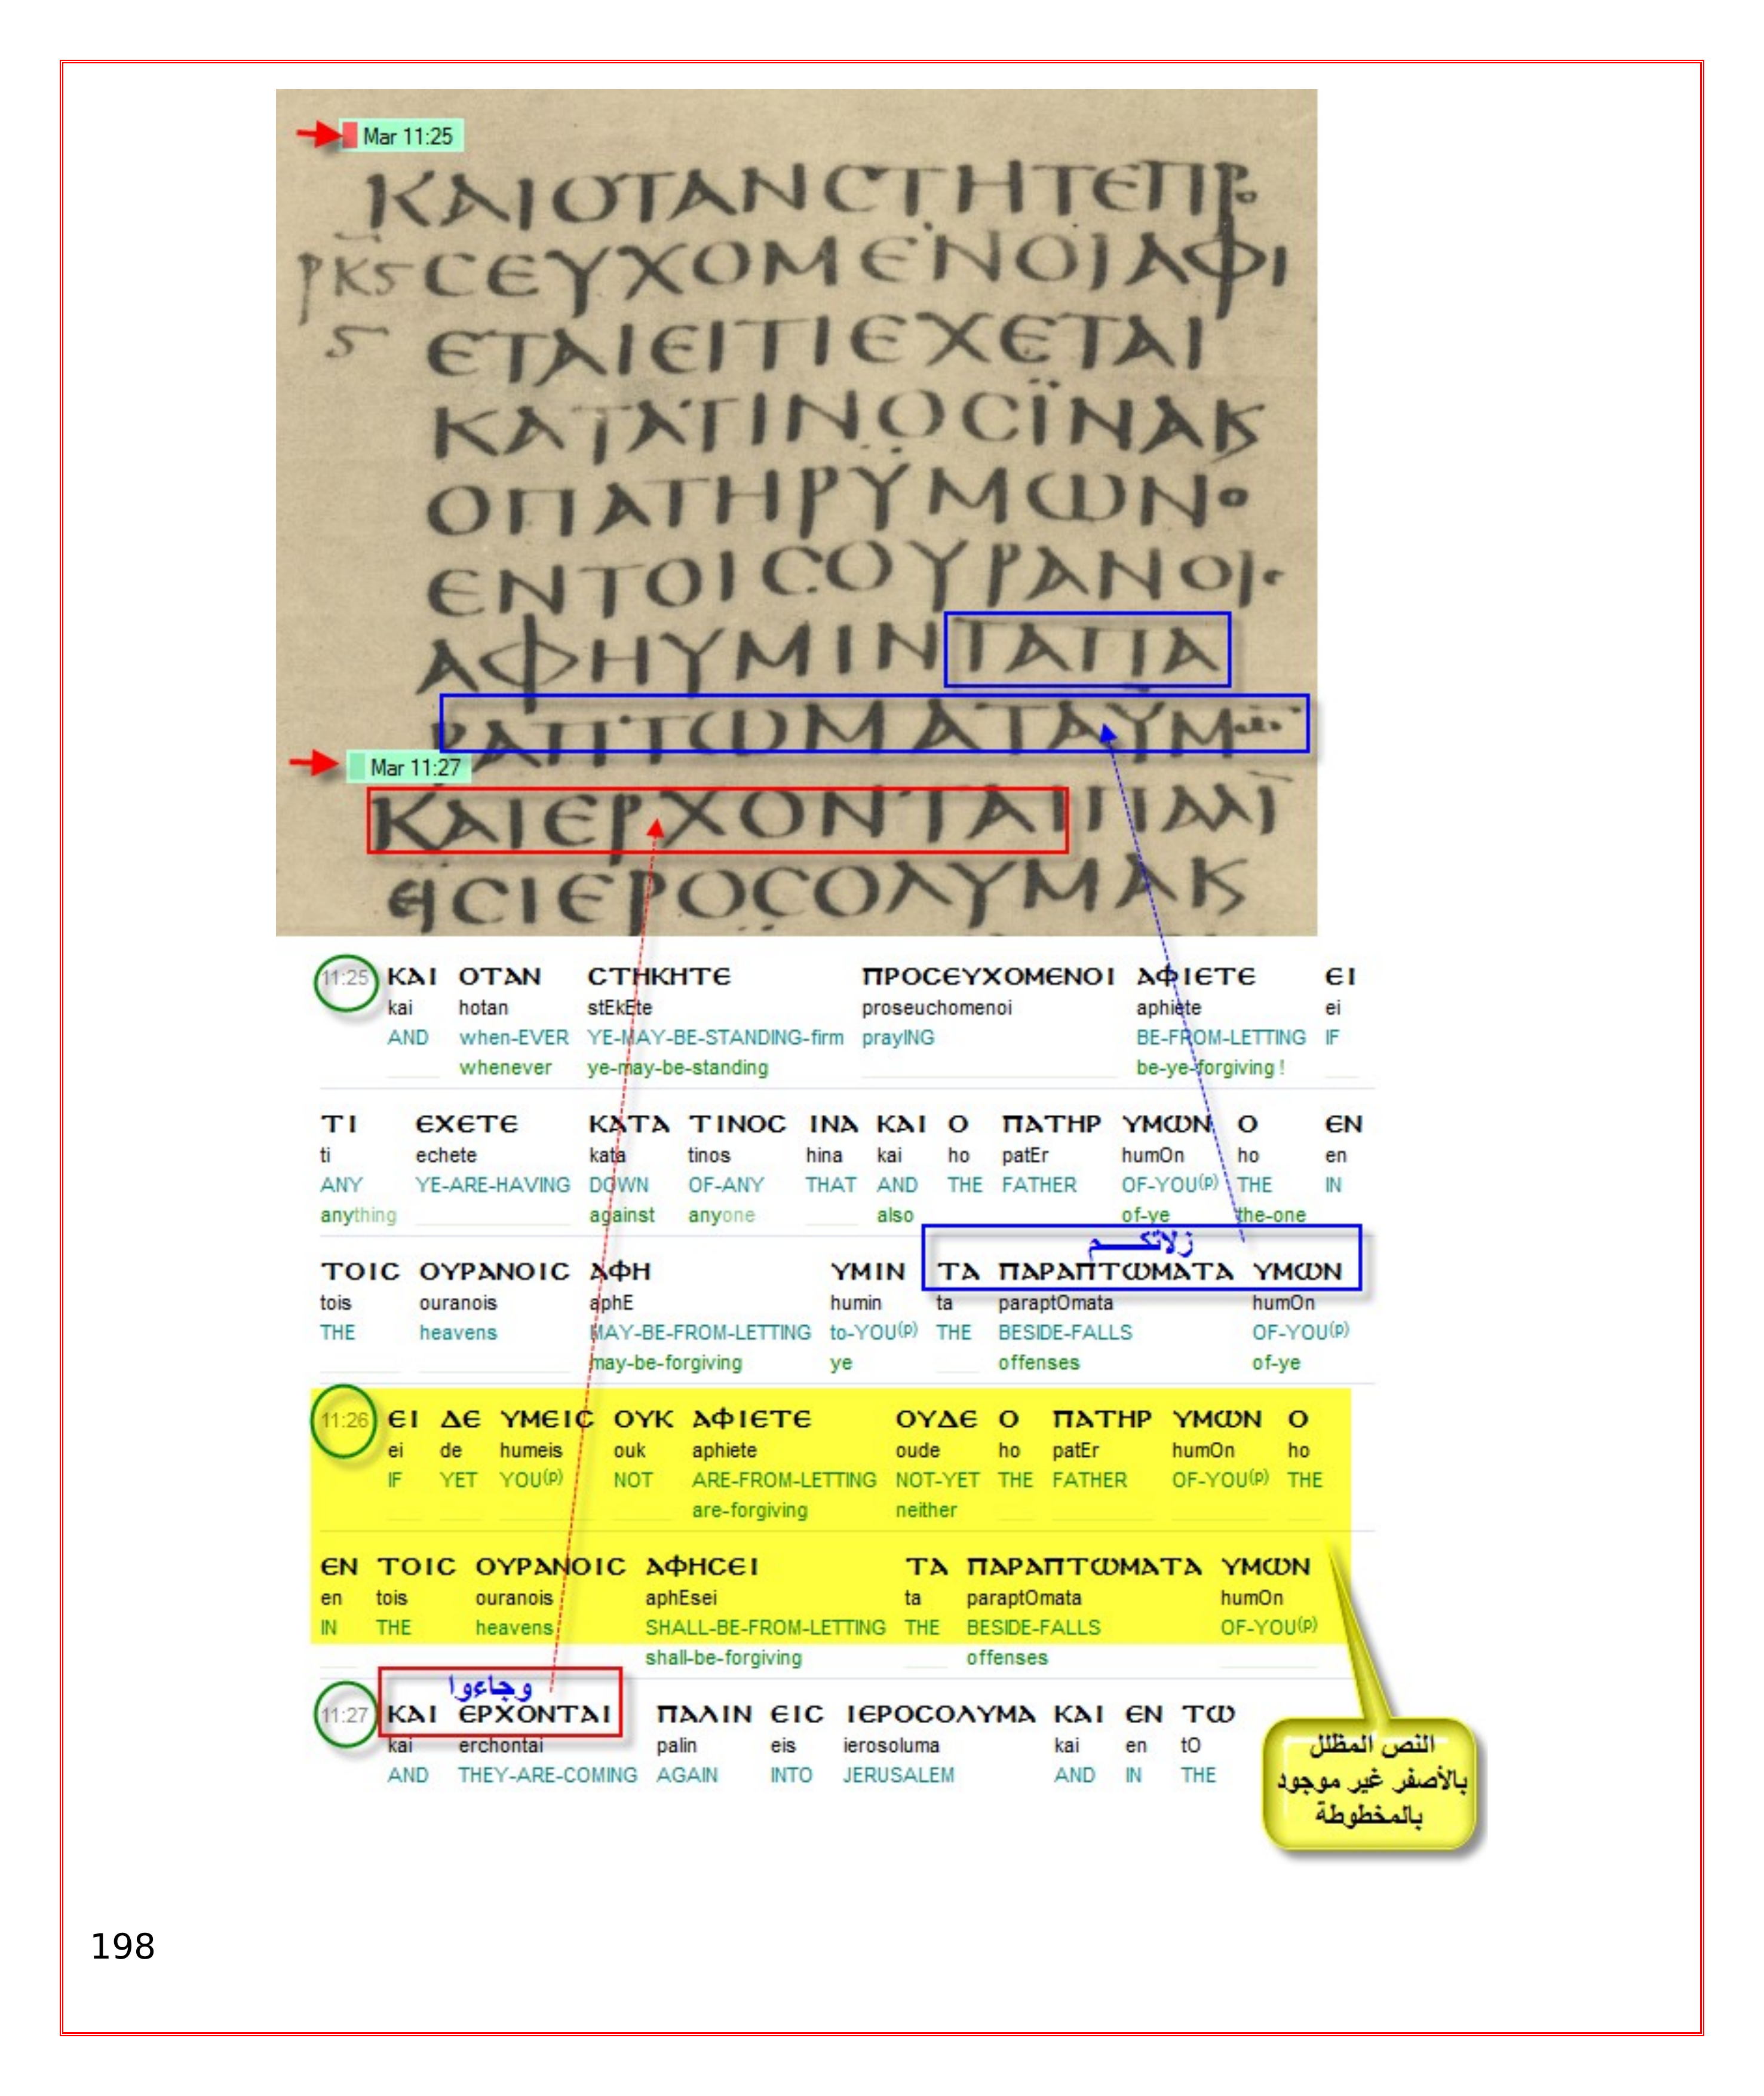 Mar 11:25
ΚΑΙΟΤΑΝCΤΗΤЄΠΡ
ΡΚϚ CЄΥΧΟΜЄΝΟΙΑΦΙ
Ϛ ЄΤΑΙЄΙΤΙЄΧЄΤΑΙ
ΚΑΤΑΤΙΝΟCΪΝΑΚ
ΟΠΑΤΗΡΥΜΩΝΟ
ЄΝΤΟΙCΟΥΡΑΝΟΙC
ΑΦΗΥΜΙΝΤΑΠΑ
ΡΑΠΤΩΜΑΤΑΥΜ
Mar 11:27
ΚΑΙЄΡΧΟΝΤΑΙΠΑΛΙ
ЄΙCΙЄΡΟCΟΛΥΜΑΚ
11:25 ΚΑΙ ΟΤΑΝ CΤΗΚΗΤЄ ΠΡΟCЄΥΧΟΜЄΝΟΙ ΑΦΙЄΤЄ ЄΙ
kai hotan stEkEte proseuchomenoi aphiete ei
AND when-EVER YE-MAY-BE-STANDING-firm prayING BE-FROM-LETTING IF
whenever ye-may-be-standing be-ye-forgiving !
ΤΙ ЄΧЄΤЄ ΚΑΤΑ ΤΙΝΟC ΙΝΑ ΚΑΙ Ο ΠΑΤΗΡ ΥΜΩΝ Ο ЄΝ
ti echete kata tinos hina kai ho patEr humOn ho en
ANY YE-ARE-HAVING DOWN OF-ANY THAT AND THE FATHER OF-YOU(p) THE IN
anything against anyone also of-ye the-one
زلاتكـــــم
ΤΟΙC ΟΥΡΑΝΟΙC ΑΦΗ ΥΜΙΝ ΤΑ ΠΑΡΑΠΤΩΜΑΤΑ ΥΜΩΝ
tois ouranois aphE humin ta paraptOmata humOn
THE heavens MAY-BE-FROM-LETTING to-YOU(p) THE BESIDE-FALLS OF-YOU(p)
may-be-forgiving ye offenses of-ye
11:26 ЄΙ ΔЄ ΥΜЄΙC ΟΥΚ ΑΦΙЄΤЄ ΟΥΔЄ Ο ΠΑΤΗΡ ΥΜΩΝ Ο
ei de humeis ouk aphiete oude ho patEr humOn ho
IF YET YOU(p) NOT ARE-FROM-LETTING NOT-YET THE FATHER OF-YOU(p) THE
are-forgiving neither
ЄΝ ΤΟΙC ΟΥΡΑΝΟΙC ΑΦΗCЄΙ ΤΑ ΠΑΡΑΠΤΩΜΑΤΑ ΥΜΩΝ
en tois ouranois aphEsei ta paraptOmata humOn
IN THE heavens SHALL-BE-FROM-LETTING THE BESIDE-FALLS OF-YOU(p)
shall-be-forgiving offenses
وجاءوا
11:27 ΚΑΙ ЄΡΧΟΝΤΑΙ ΠΑΛΙΝ ЄΙC ΙЄΡΟCΟΛΥΜΑ ΚΑΙ ЄΝ ΤΩ
kai erchontai palin eis ierosoluma kai en tO
AND THEY-ARE-COMING AGAIN INTO JERUSALEM AND IN THE
النص المظلل
بالأصفر غير موجود
بالمخطوطة
198